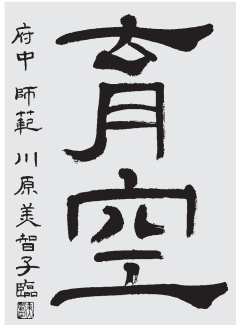 育空
府中 師範 川原美智子臨